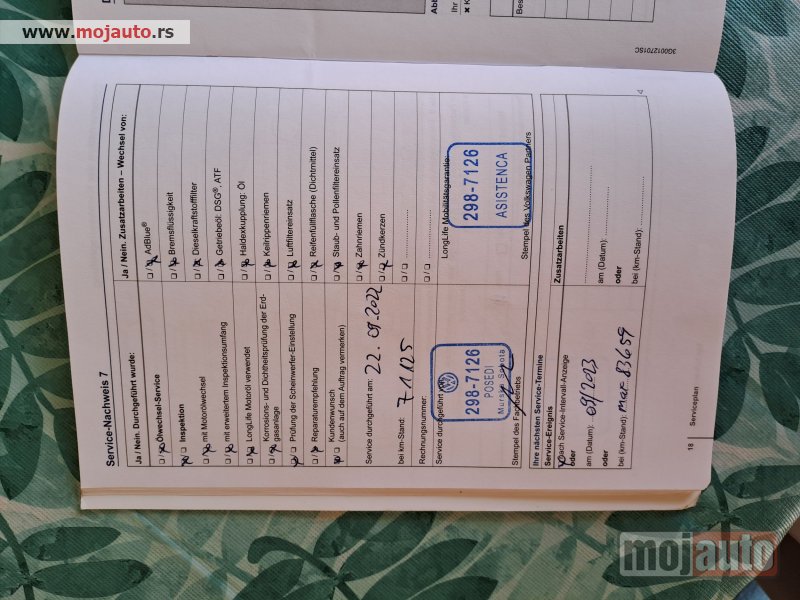 www.mojauto.rs
3G0012701SC
Service-Nachweis 7
Ja / Nein. Durchgeführt wurde:
Ölwechsel-Service
Inspektion
mit Motorölwechsel
mit erweitertem Inspektionsumfang
LongLife Motoröl verwendet
Korrosions- und Dichtheitsprüfung der Erd-
gasanlage
Prüfung der Scheinwerfer-Einstellung
Reparaturempfehlung
Kundenwunsch
(auch auf dem Auftrag vermerken)
Service durchgeführt am: 22.09.2022
bei km-Stand: 71125
Rechnungsnummer:
Service durchgeführt
298-7126
POSEDI
Murska Sobota
Stempel des Fachbetriebs
Ja / Nein. Zusatzarbeiten – Wechsel von:
AdBlue®
Bremsflüssigkeit
Dieselkraftstofffilter
Getriebeöl: DSG®, ATF
Haldexkupplung: Öl
Keilrippenriemen
Luftfiltereinsatz
Reifenfüllflasche (Dichtmittel)
Staub- und Pollenfiltereinsatz
Zahnriemen
Zündkerzen
LongLife Mobilitätsgarantie:
298-7126
ASISTENCA
Stempel des Volkswagen Partners
Ihre nächsten Service-Termine
Service-Ereignis
Nach Service-Intervall-Anzeige
oder
am (Datum): 09/2023
oder
bei (km-Stand): max. 83659
Zusatzarbeiten
am (Datum):
oder
bei (km-Stand):
18 Serviceplan
mojauto